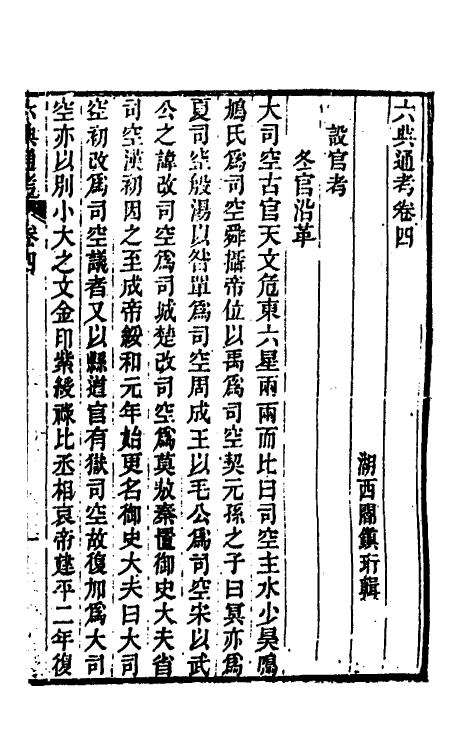 六典通考卷四
湖西閻鎮珩輯
設官考
冬官沿革
大司空古官天文危東六星兩兩而比曰司空主水少昊鳲
鳩氏爲司空舜攝帝位以禹爲司空契元孫之子曰冥亦爲
夏司空殷湯以咎單爲司空周成王以毛公爲司空宋以武
公之諱改司空爲司城楚改司空爲莫敖秦置御史大夫省
司空漢初因之至成帝綏和元年始更名御史大夫曰大司
空初改爲司空議者又以縣道官有獄司空故復加爲大司
空亦以別小大之文金印紫綬祿比丞相哀帝建平二年復
六典通考 卷四 一